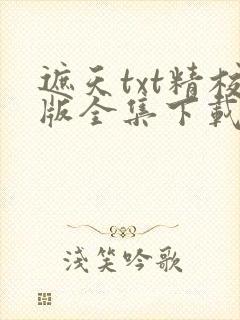 遮天txt精校
版全集下載
淺笑吟歌